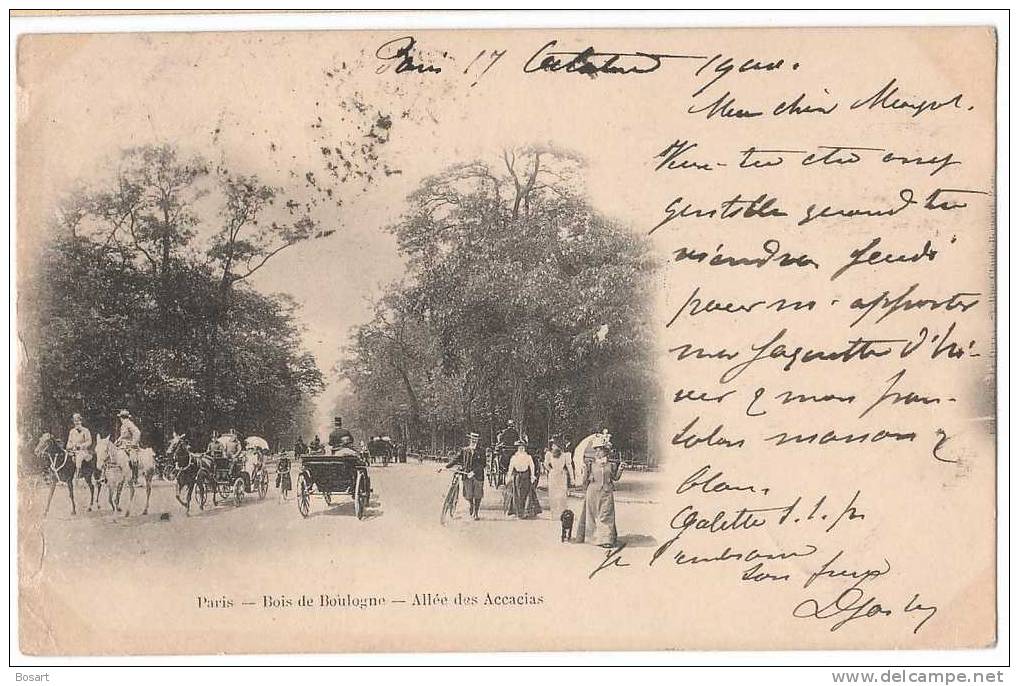 Paris 17 Octobre 1900.
Mon cher
Veux-tu être assez
gentille quand tu
viendras jeudi
pour m'apporter
ma jaquette d'hi-
ver & mon pan-
talon marron &
blanc.
Galette s.l.p
Je t'embrasse
Ton frère
Paris — Bois de Boulogne — Allée des Accacias
Bosart
www.delcampe.net